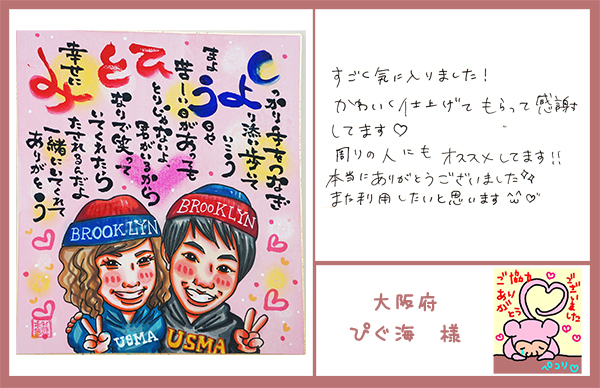 しっかり手をつなぎ
より添い歩いて
いこう
まよう日や
苦しい日があっても
ひとりじゃないよ
がいるから
となりで笑って
いてくれたら
幸せに
みたされるんだよ
一緒にいてくれて
ありがとう
BROOKLYN
BROOKLYN
USMA
USMA
すごく気に入りました!
かわいく仕上げてもらって感謝
してます♡
周りの人にもオススメしてます!!
本当にありがとうございました
また利用したいと思います
大阪府
ぴぐ海 様
ご協力
ありがとう
ございました
ペコリ